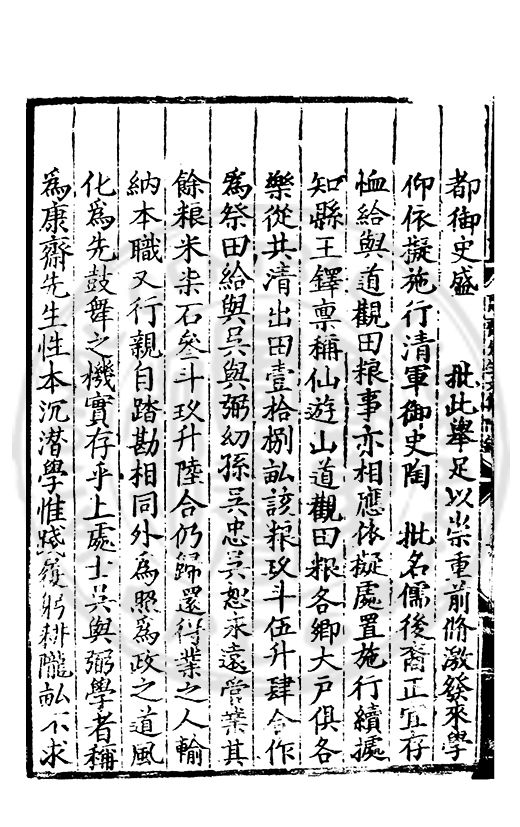 都御史盛　　批此舉足以崇重前脩激發來學
仰依擬施行清軍御史陶　批名儒後裔正宜存
恤給與道觀田粮事亦相應依擬處置施行續據
知縣王鐸禀稱仙遊山道觀田粮各鄉大戶俱各
樂從共清出田壹拾捌畝該粮玖斗伍升肆合作
為祭田給與吳與弼幼孫吳忠吳恕永遠營業其
餘粮米柒石叄斗玖升陸合仍歸還得業之人輸
納本職又行親自踏勘相同外為照為政之道風
化為先鼓舞之機實存乎上處士吳與弼學者稱
為康齋先生性本沉潛學惟踐履躬耕隴畝不求